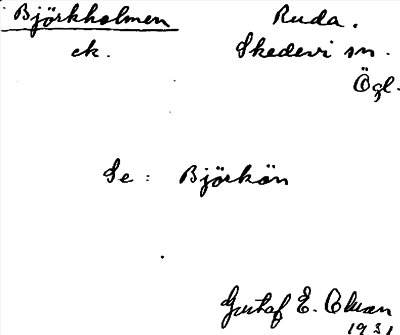 Björkholmen Ruda.
ek. Skedevi sn.
Ögl.
Se: Björkön
Gustaf E. Olsson
1931